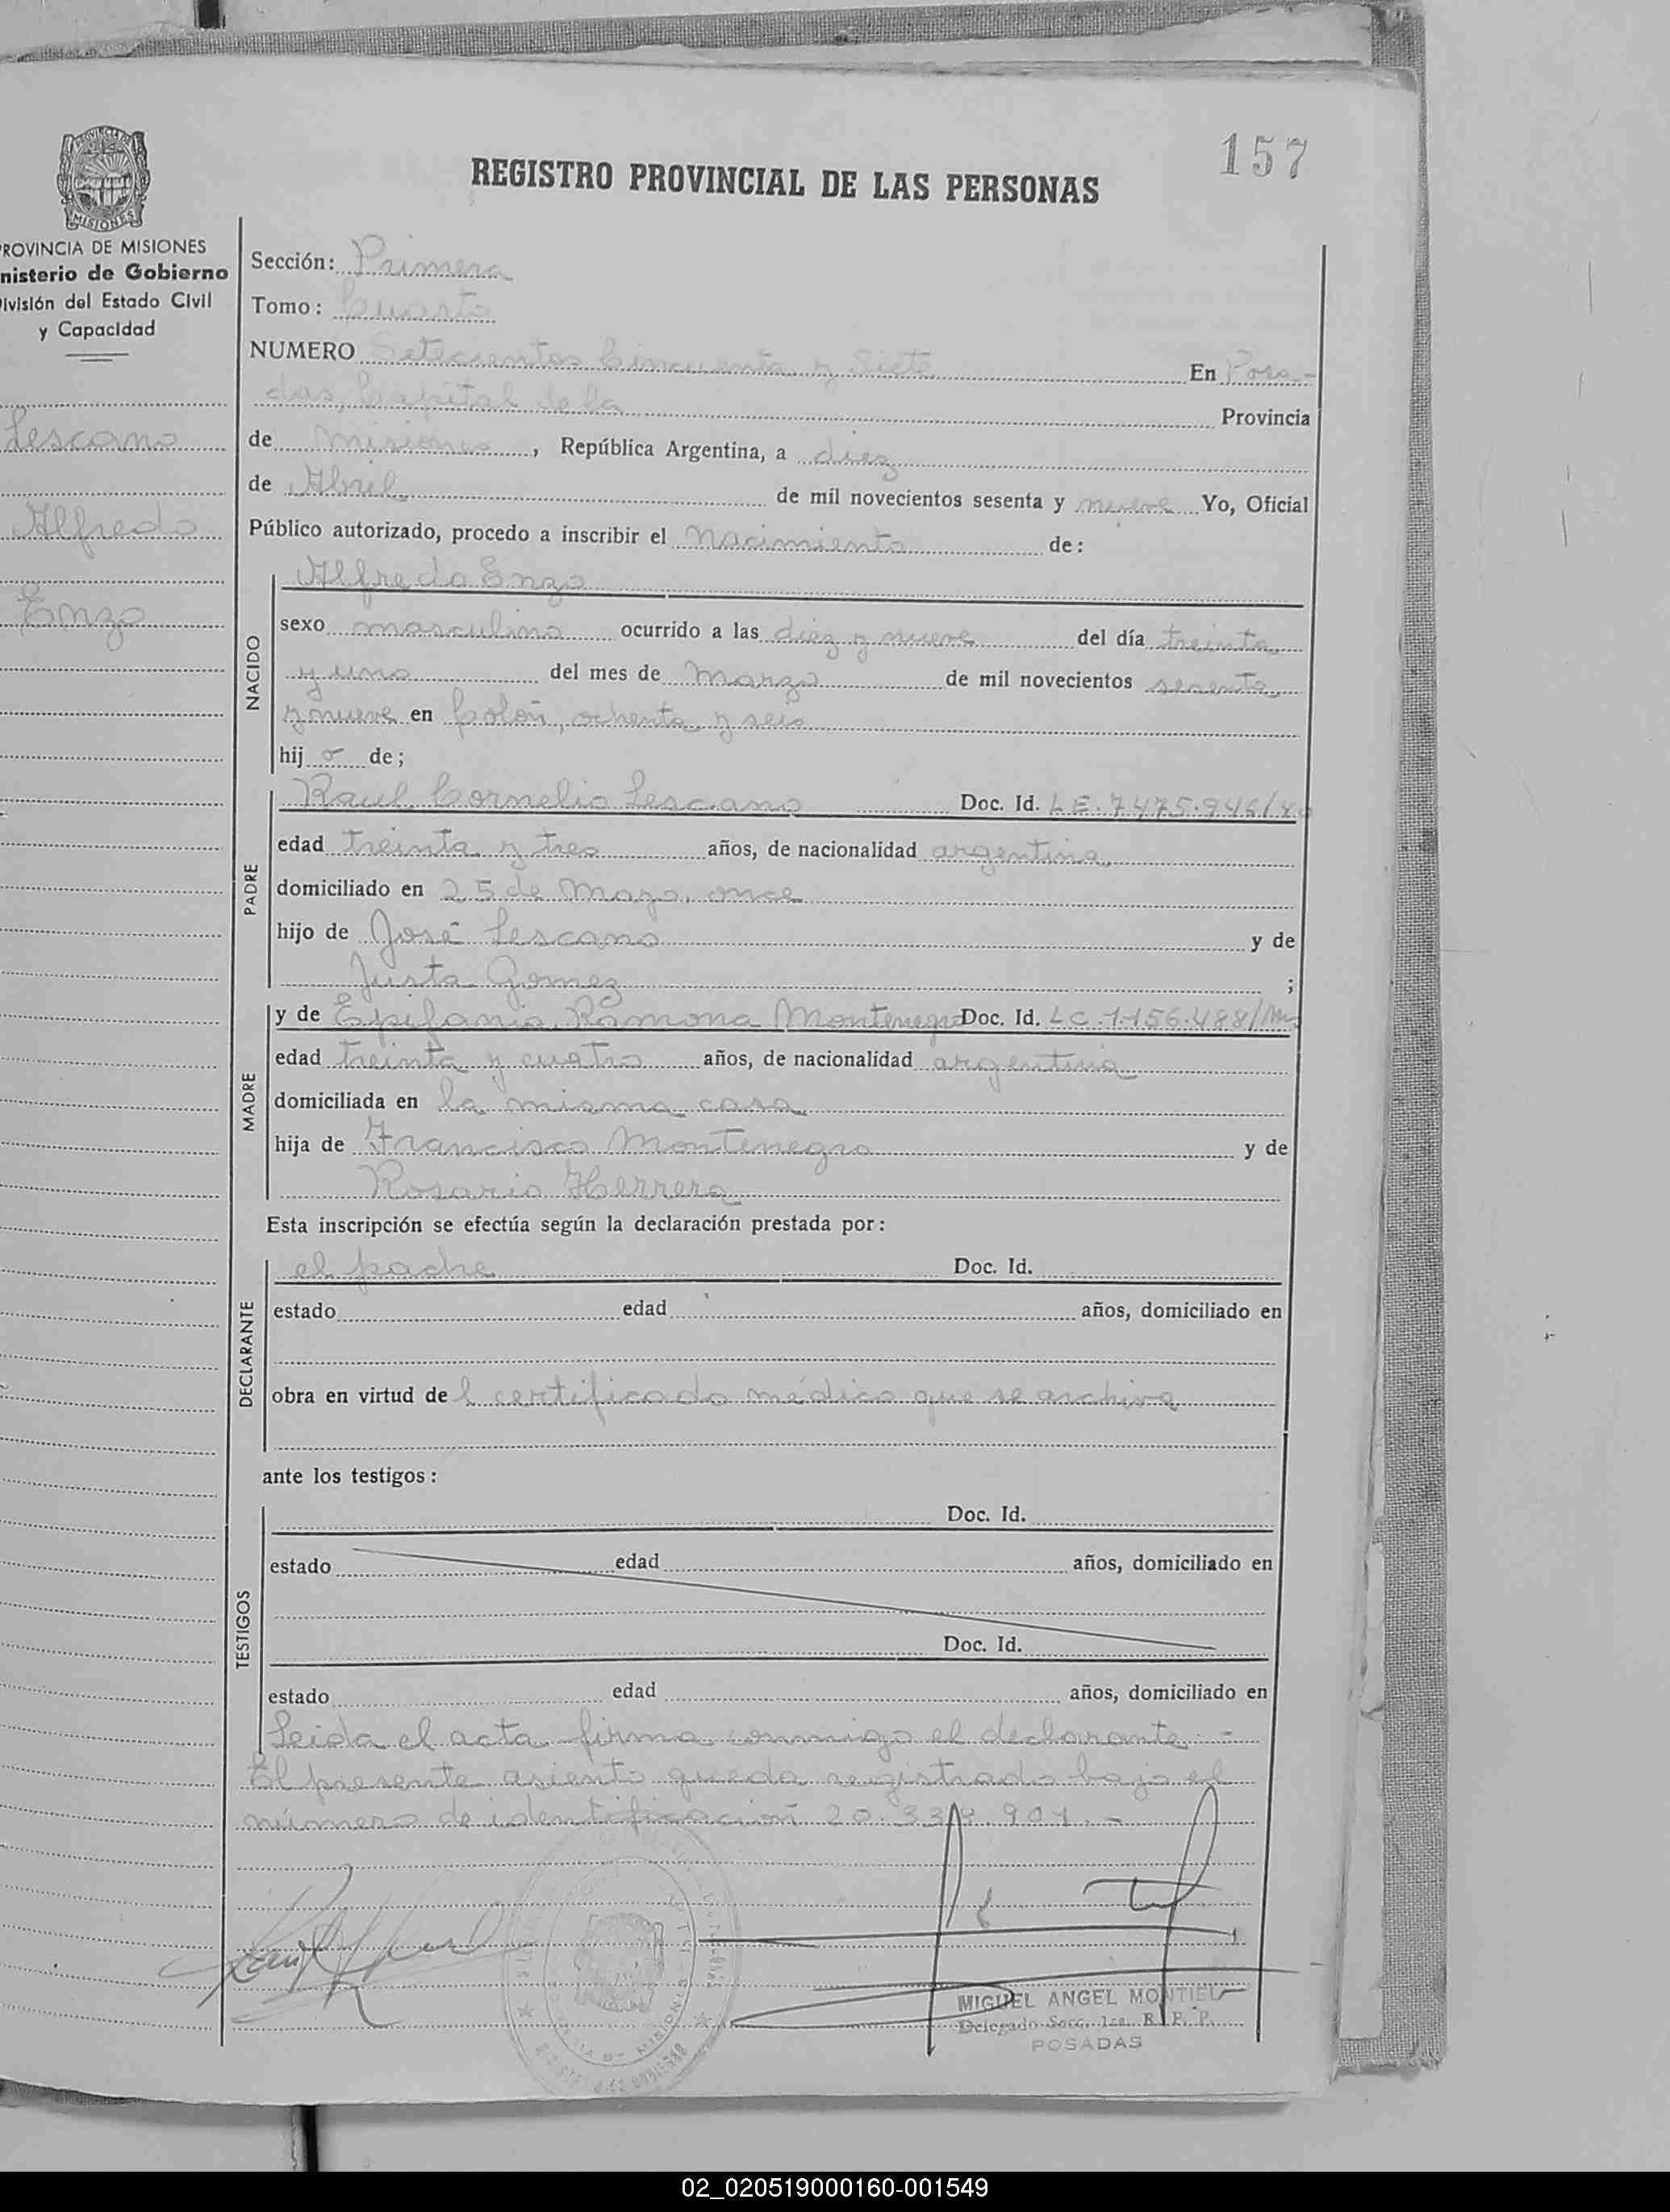 157
REGISTRO PROVINCIAL DE LAS PERSONAS
PROVINCIA DE
MISIONES
ROVINCIA DE MISIONES
nisterio de Gobierno
ivisión del Estado Civil
y Capacidad
Lescano
Alfredo
Enzo
Sección: Primera
Tomo: Cuarto
NUMERO Setecientos Cincuenta y Siete En Posa-
das, Capital de la Provincia
de Misiones, República Argentina, a diez
de Abril de mil novecientos sesenta y nueve Yo, Oficial
Público autorizado, procedo a inscribir el Nacimiento de:
NACIDO
Alfredo Enzo
sexo masculino ocurrido a las diez y nueve del día treinta
y uno del mes de Marzo de mil novecientos sesenta
y nueve en Colón, ochenta y seis
hij o de;
PADRE
Raul Cornelio Lescano Doc. Id. LE. 7.475.946/
edad treinta y tres años, de nacionalidad argentina
domiciliado en 25 de Mayo, once
hijo de José Lescano y de
Justa Gomez ;
MADRE
y de Epifania Ramona Montenegro Doc. Id. LC. 1.156.488/
edad treinta y cuatro años, de nacionalidad argentina
domiciliada en la misma casa
hija de Francisco Montenegro y de
Rosario Herrera
Esta inscripción se efectúa según la declaración prestada por:
DECLARANTE
el padre Doc. Id.
estado edad años, domiciliado en
obra en virtud de l certificado médico que se archiva
ante los testigos:
TESTIGOS
Doc. Id.
estado edad años, domiciliado en
Doc. Id.
estado edad años, domiciliado en
Leida el acta firma conmigo el declarante. -
El presente asiento queda registrado bajo el
número de identificación 20.338.901. -
MIGUEL ANGEL MONTIEL
Delegado Secc. 1ra. R. P. P.
POSADAS
02_020519000160-001549